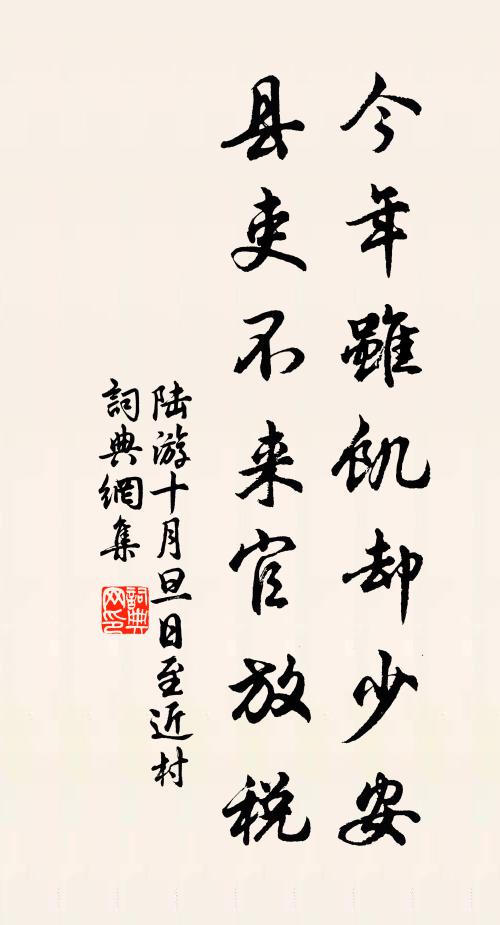 今年雖飢却少安
县吏不来官放税
陆游十月旦日至近村
詞典網集
詞典网印